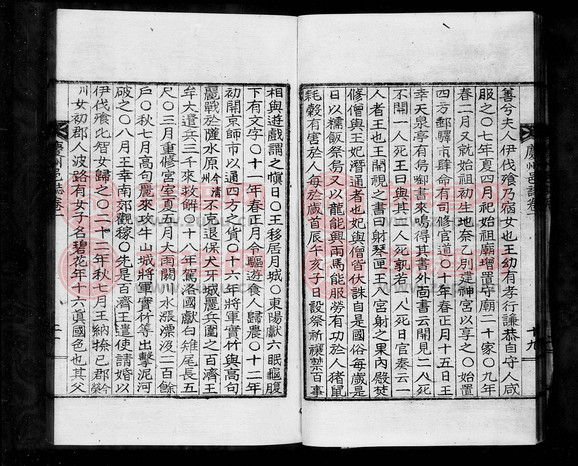 善兮夫人伊伐飡乃宿女也王幼有孝行謙恭自守人咸
服之○七年夏四月祀始祖廟增置守廟二十家○九年
春二月又就始祖初生地奈乙別建神宮以享之○始置
四方郵驛市肆命有司修官道○十年春正月十五日王
幸天泉亭有烏啣書來鳴得其書外面書云開見二人死
不開一人死王曰與其二人死孰若一人死日官奏云一
人者王也王開視之書曰射琴匣王入宮射之果內殿焚
修僧與王妃潛通者也妃與僧皆伏誅自是國俗每歲是
日以糯飯祭烏又以龍能興雨馬能服勞有功於人猪鼠
耗穀有害於人每於歲首辰午亥子日設祭新禳禁百事
相與遊戲謂之愼日○王移居月城○東陽獻六眼龜腹
下有文字○十一年春正月令驅遊食人歸農○十二年
初開京師市以通四方之貨○十六年將軍實竹與高句
麗戰於薩水原州今淸不克退保犬牙城麗兵圍之百濟王
牟大遣兵三千來救解○十八年駕洛國獻白雉尾長五
尺○三月重修宮室夏五月大雨閼川水漲漂沒二百餘
戶○秋七月高句麗來攻牛山城將軍實竹等出擊泥河
破之○八月王幸南郊觀稼○先是百濟王遣使請婚以
伊伐飡比智女歸之○二十二年秋七月王納捺已郡榮
川女初郡人波路有女子名碧花年十六眞國色也其父
慶州邑誌卷一
十九